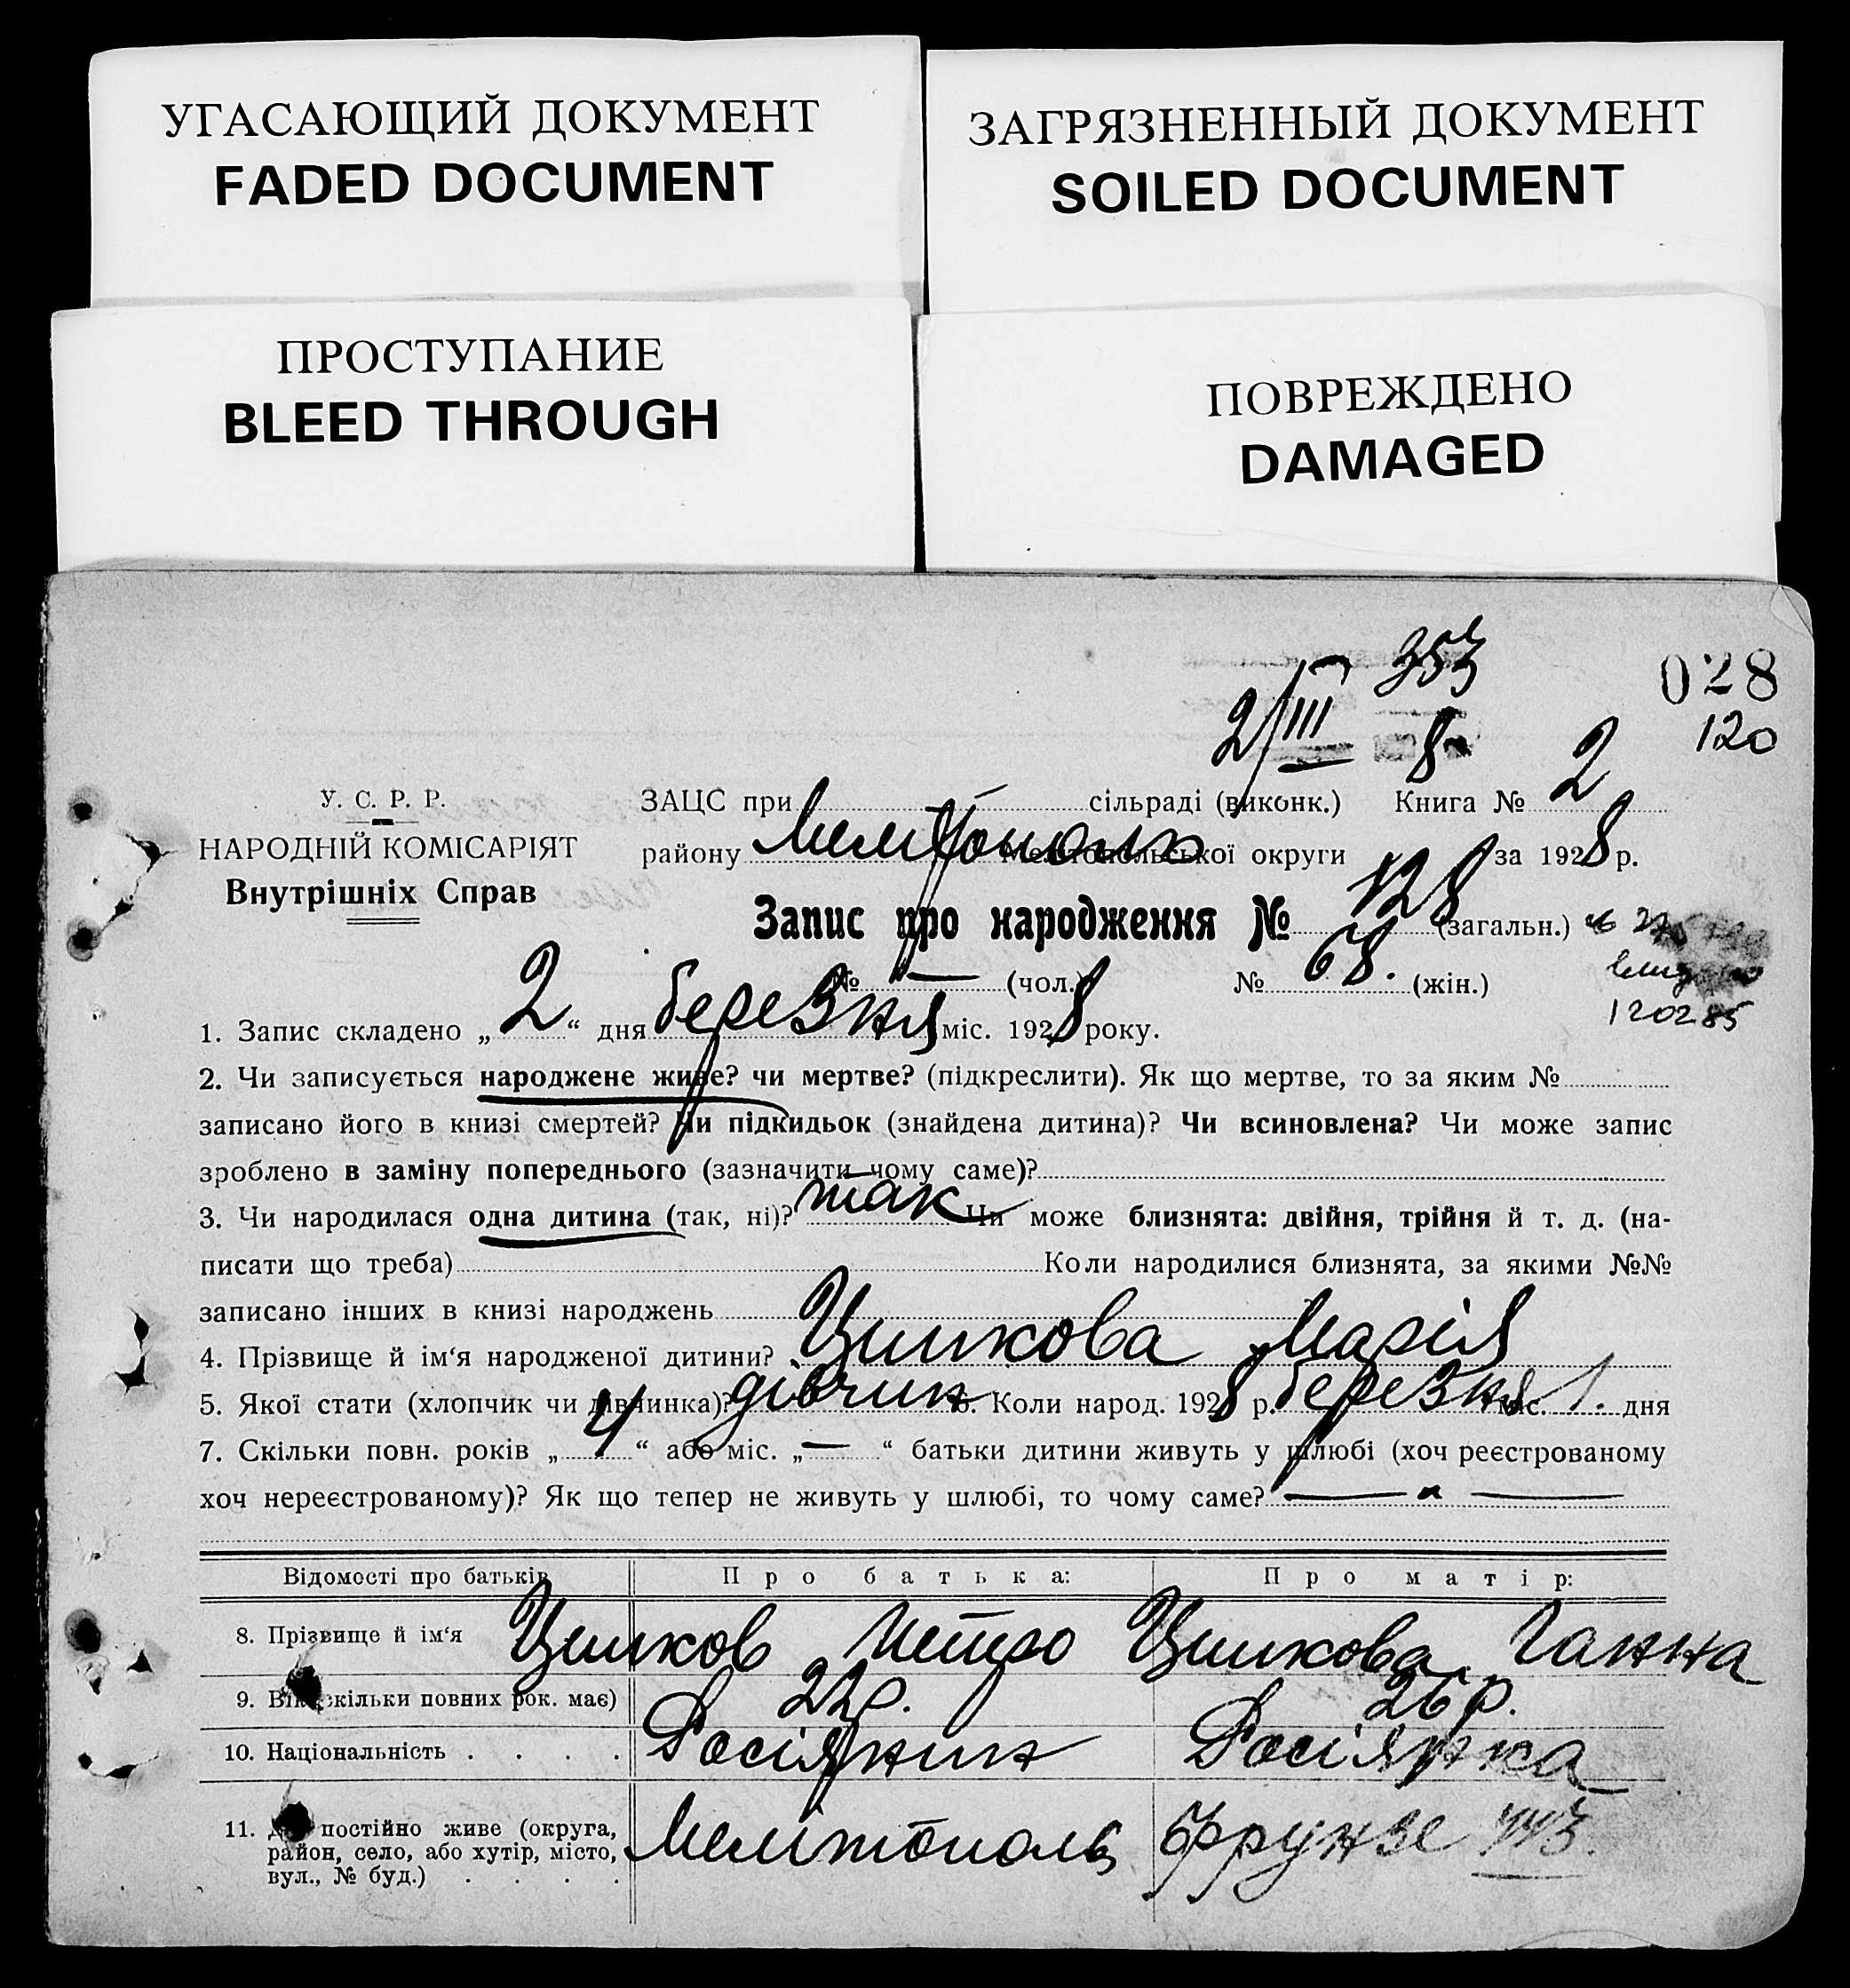 УГАСАЮЩИЙ ДОКУМЕНТ
FADED DOCUMENT
ЗАГРЯЗНЕННЫЙ ДОКУМЕНТ
SOILED DOCUMENT
ПРОСТУПАНИЕ
BLEED THROUGH
ПОВРЕЖДЕНО
DAMAGED
353
028
2/III 8
120
У. С. Р. Р.
НАРОДНІЙ КОМІСАРІЯТ
Внутрішніх Справ
ЗАЦС при сільраді (виконк.) Книга № 2
району Мелітополь Мелітопольської округи за 1928 р.
Запис про народження № 128 (загальн.)
№ — (чол.) № 68. (жін.)
120285
1. Запис складено „ 2 “ дня березня міс. 1928 року.
2. Чи записується народжене живе? чи мертве? (підкреслити). Як що мертве, то за яким №
записано його в книзі смертей? Чи підкидьок (знайдена дитина)? Чи всиновлена? Чи може запис
зроблено в заміну попереднього (зазначити чому саме)?
3. Чи народилася одна дитина (так, ні)? так Чи може близнята: двійня, трійня й т. д. (на-
писати що треба) Коли народилися близнята, за якими №№
записано інших в книзі народжень
4. Прізвище й ім‘я народженої дитини? Марія
5. Якої стати (хлопчик чи дівчинка)? дівчин 6. Коли народ. 1928 р. березня міс. 1. дня
7. Скільки повн. років „ 4 “ або міс. „ — “ батьки дитини живуть у шлюбі (хоч реєстрованому
хоч нереєстрованому)? Як що тепер не живуть у шлюбі, то чому саме? — „ —
Відомості про батьків Про батька: Про матір:
8. Прізвище й ім‘я Петро Ганна
9. Вік (скільки повних рок. має) 22р. 26 р.
10. Національність . . . . Росіянин Росіянка
11. Де постійно живе (округа,
район, село, або хутір, місто,
вул., № буд.) . . . . Мелітополь Фрунзе